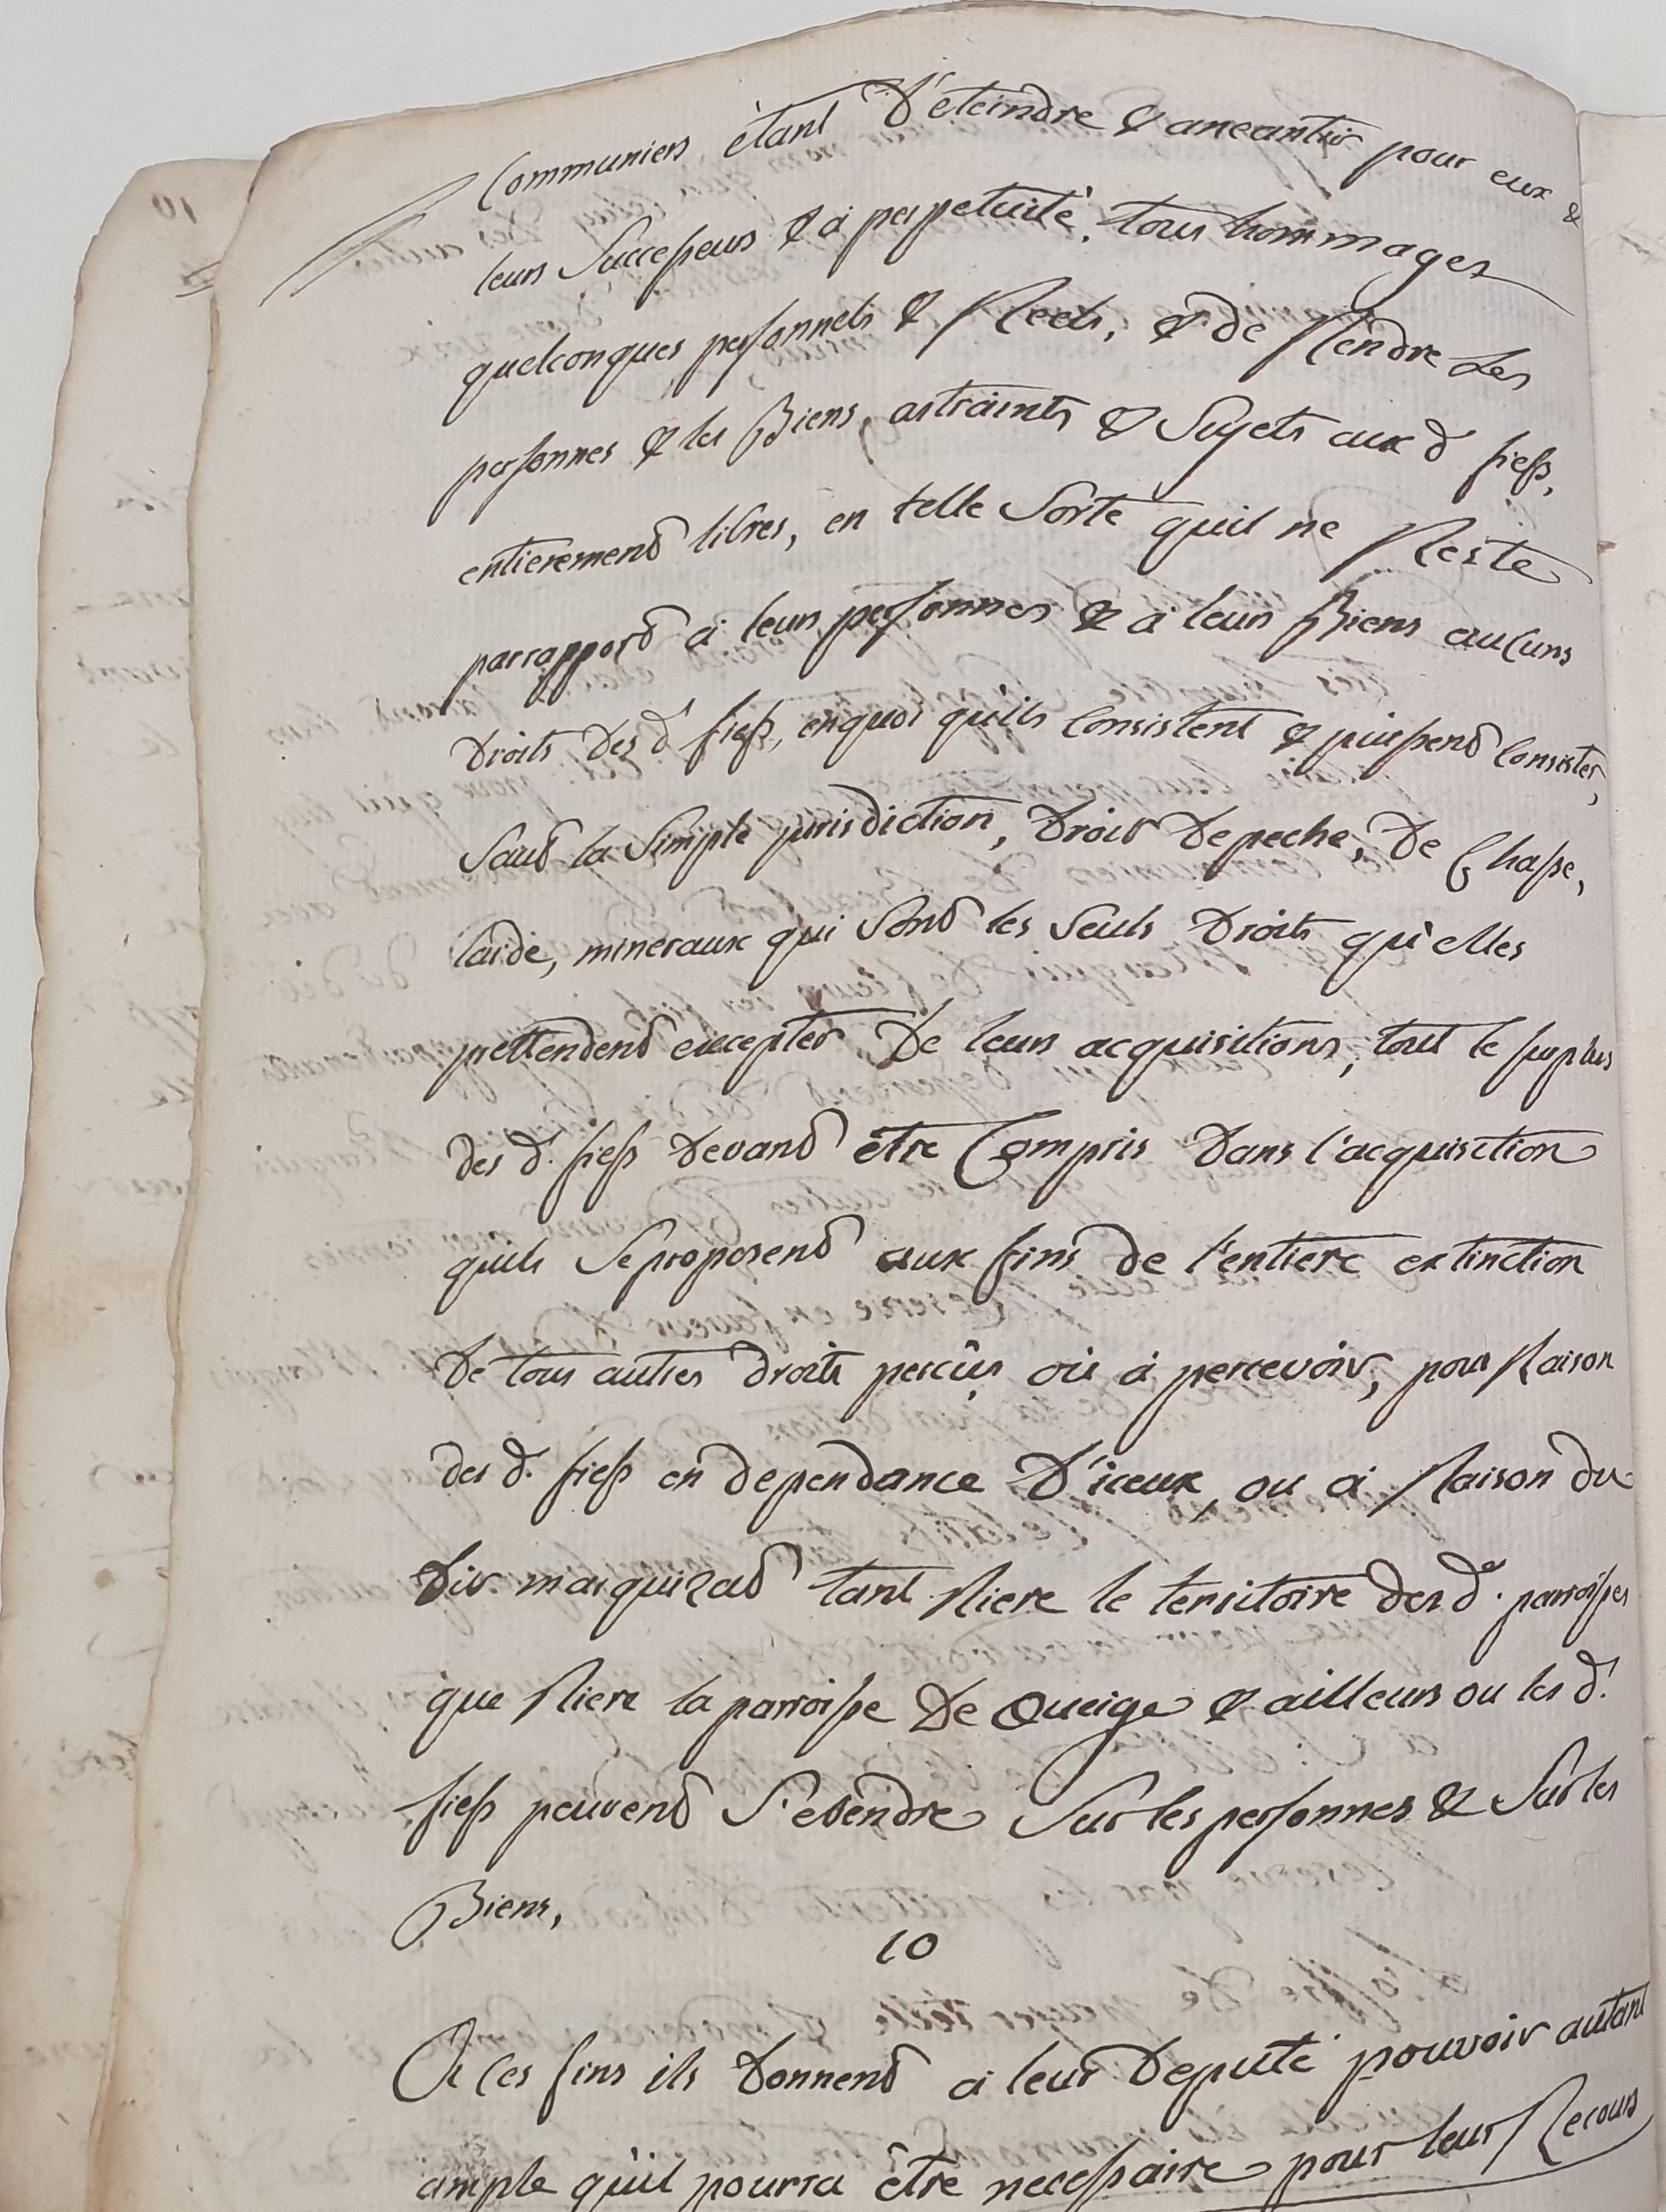 Communiers étant D'eteindre & aneantir pour eux &
leurs Successeurs & à perpetuité, tous hommages
quelconques personnels & Réels, & de Rendre Les
personnes & les Biens, astraints & Sujets aux d fiefs,
entierement libres, en telle Sorte quil ne Reste
parrapport à leurs personnes & à leurs Biens aucuns
Droits des d.ᵗ fiefs, enquoi qu'ils Consistent & puissent Consister,
Sauf la Simple jurisdiction, Droit De peche, De Chasse,
laide, mineraux qui Sont les Seuls Droits qu'elles
prettendent excepter De leurs acquisitions, tout le surplus
des d.ᵗ fiefs Devant être Compris Dans l'acquisition
quils Se proposent aux fins de l'entiere extinction
De tous autres droits percûs où à percevoir, pour Raison
des d.ᵗ fiefs en dependance D'iceux, ou à Raison du
Dit marquizat tant Riere le territoire des d.ᵉ parroisses
que Riere la parroisse De Queige & ailleurs ou les d.ᵗ
fiefs peuvent S'etendre Sur les personnes & Sur les
Biens,
10
A Ces fins ils Donnent à leur Deputé pouvoir autant
ample qu'il pourra être necessaire pour leur Recours